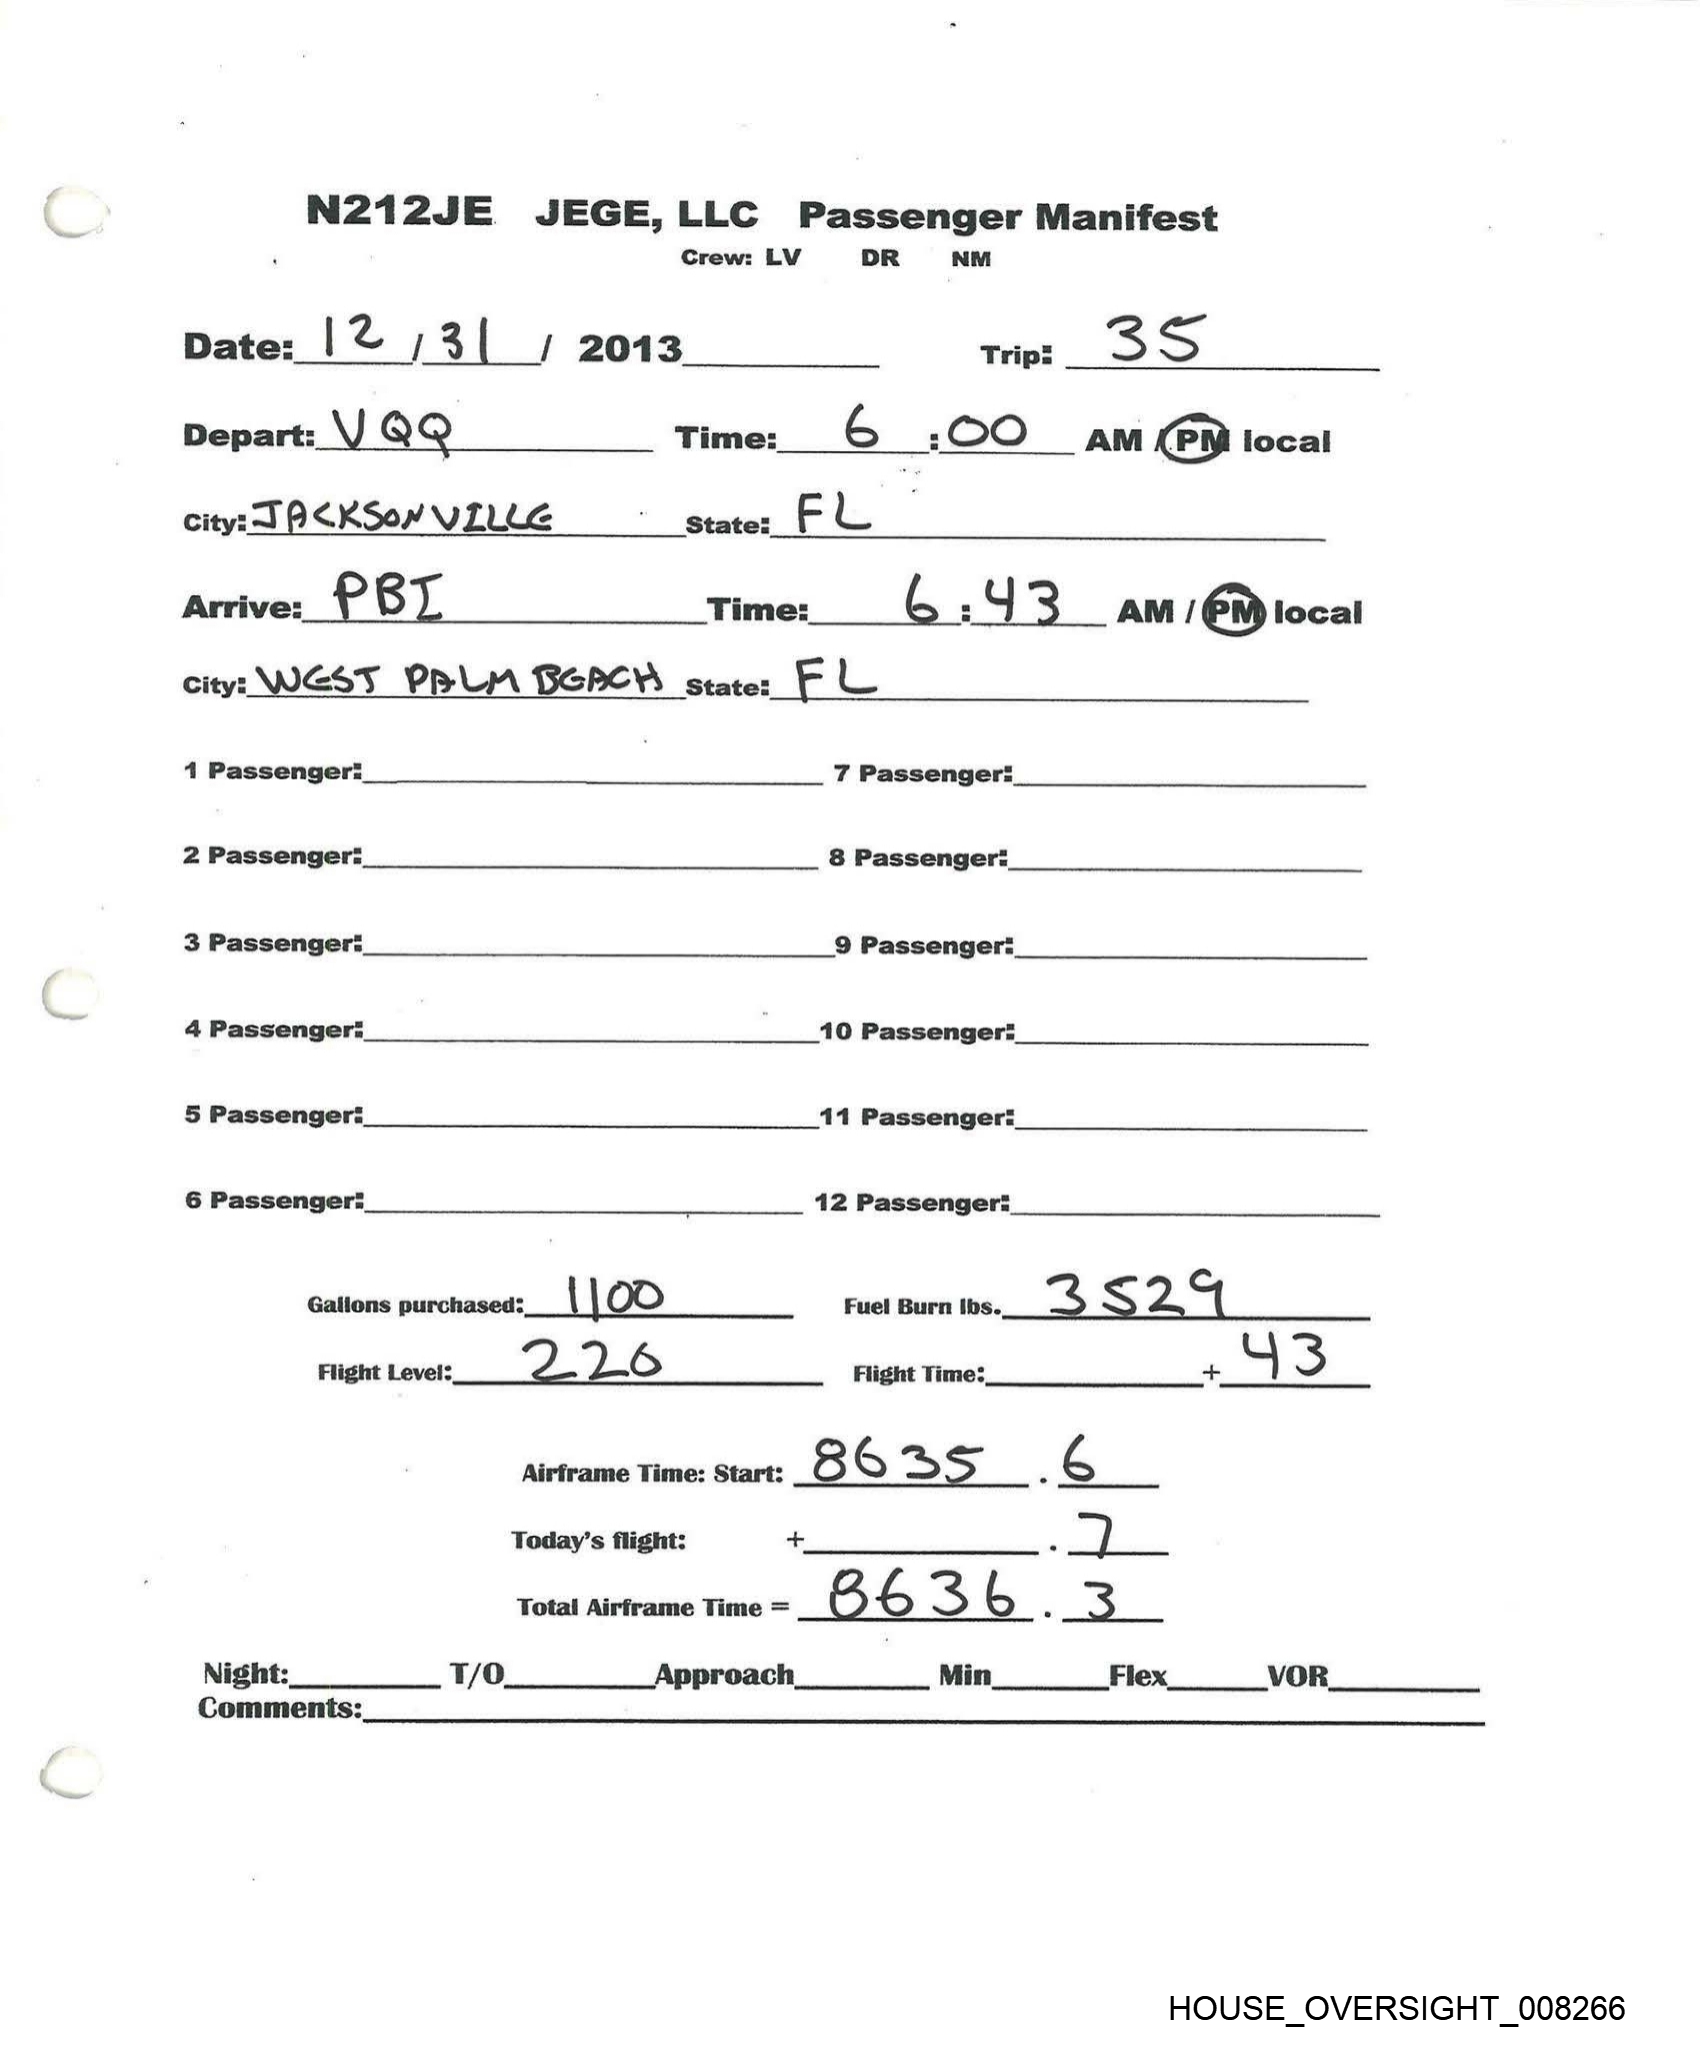 N212JE JEGE, LLC Passenger Manifest
Crew: LV DR NM
Date: 12 / 31 / 2013 Trip: 35
Depart: VQQ Time: 6 : 00 AM / PM local
City: JACKSONVILLE State: FL
Arrive: PBI Time: 6 : 43 AM / PM local
City: WEST PALM BEACH State: FL
1 Passenger: 7 Passenger:
2 Passenger: 8 Passenger:
3 Passenger: 9 Passenger:
4 Passenger: 10 Passenger:
5 Passenger: 11 Passenger:
6 Passenger: 12 Passenger:
Gallons purchased: 1100 Fuel Burn lbs. 3529
Flight Level: 220 Flight Time: + 43
Airframe Time: Start: 8635 . 6
Today's flight: + . 7
Total Airframe Time = 8636 . 3
Night: T/O Approach Min Flex VOR
Comments:
HOUSE_OVERSIGHT_008266